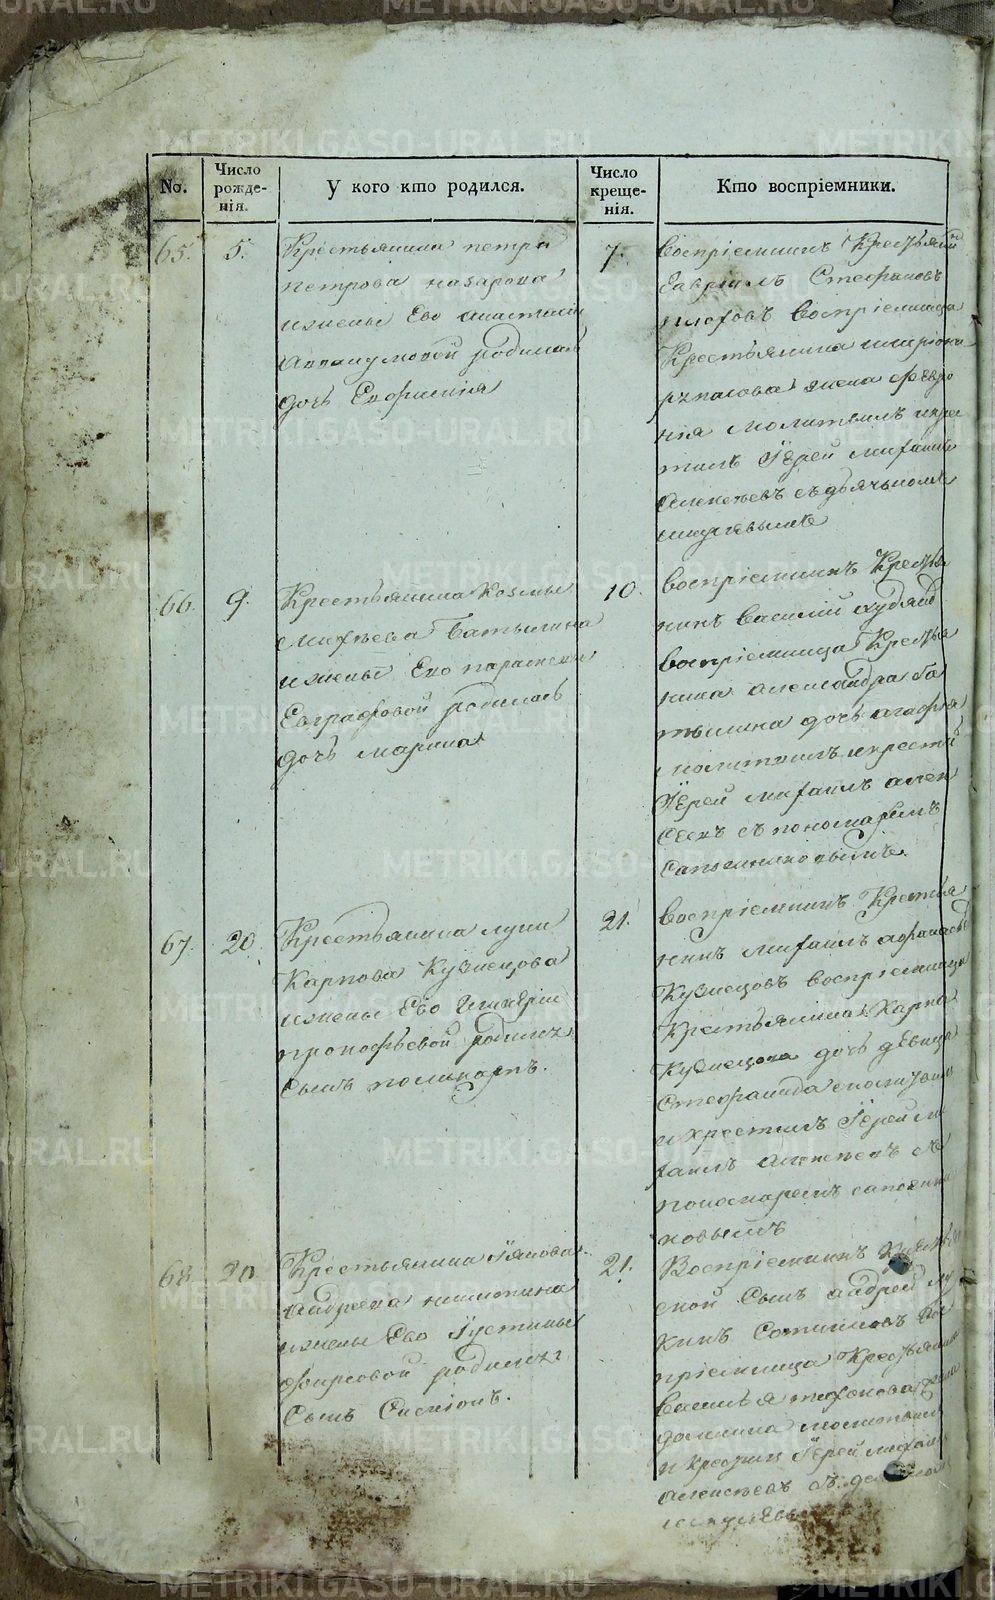 METRIKI.GASO-URAL.RU
No.
Число рожде-нія.
У кого кто родился.
Число креще-нія.
Кто воспріемники.
65.
5.
Крестьянина петра
петрова назарова
ижены Ево анастасіи
родилась
дочь Евфимія
7.
воспріемникъ Крестьянинъ
Гавріилъ Стефановъ
воспріемница
Крестьянина
жена февро
нія молитвилъ икрес
тилъ Іерей михаилъ
Алексѣевъ съдьячькомъ
66.
9.
Крестьянина Козмы
Батылина
ижены Ево параскеви
Евграфовой родилась
дочь марина
10.
воспріемникъ Кресть
нинъ василій
воспріемница Крестья
нина александра ба
тылина дочь агафія
молитвилъ икрестилъ
Іерей михаилъ алек
сеевъ съ пономаремъ
сапожниковымъ.
67.
20.
Крестьянина луки
Карпова Кузнецова
ижены Ево Гликеріи
прокофьевой родился
сынъ поликарпъ.
21.
воспріемникъ Крестья
нинъ михаилъ афанасьевъ
Кузнецовъ воспріемница
Крестьянина Карпа
Кузнецова дочь девица
Стефанида молитвилъ
икрестилъ Іерей ми
хаилъ алексеевъ съ
пономаремъ сапожни
ковымъ
68.
20.
Крестьянина Іакова
андреева
ижены Ево Іустины
фирсовой родился
сынъ
21.
Воспріемникъ
ской сынъ андрей лу
кинъ Сотниковъ вос
пріемница Крестьянина
василья жена
домника молитвилъ
и крестилъ Іерей михаилъ
алексеевъ съ